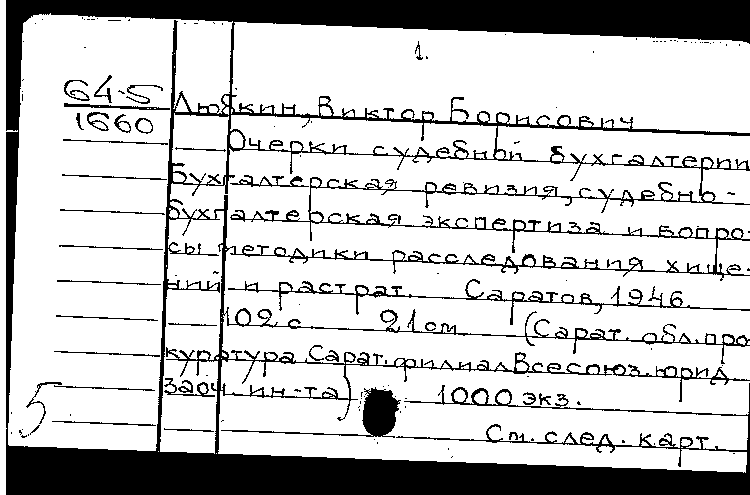 1.
64-5
1660
Любкин, Виктор Борисович
Очерки судебной бухгалтерии
Бухгалтерская ревизия, судебно-
бухгалтерская экспертиза и вопро-
сы методики расследования хище-
ний и растрат. Саратов, 1946.
102 с. 21 см. (Сарат. обл. про
куратура Сарат. филиал Всесоюз. юрид
заоч. ин-та) 1000 экз.
5
См. след. карт.